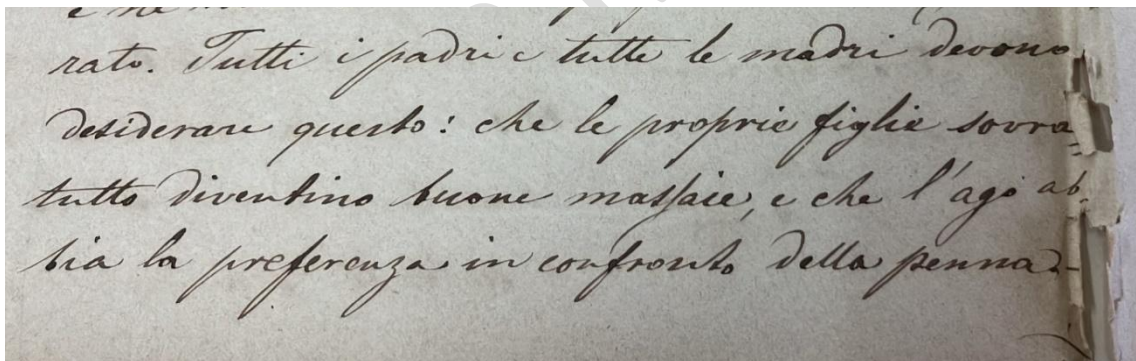 rato. Tutti i padri e tutte le madri devono
desiderare questo: che le proprie figlie sovra=
tutto diventino buone massaie, e che l'ago ab=
bia la preferenza in confronto della penna.-